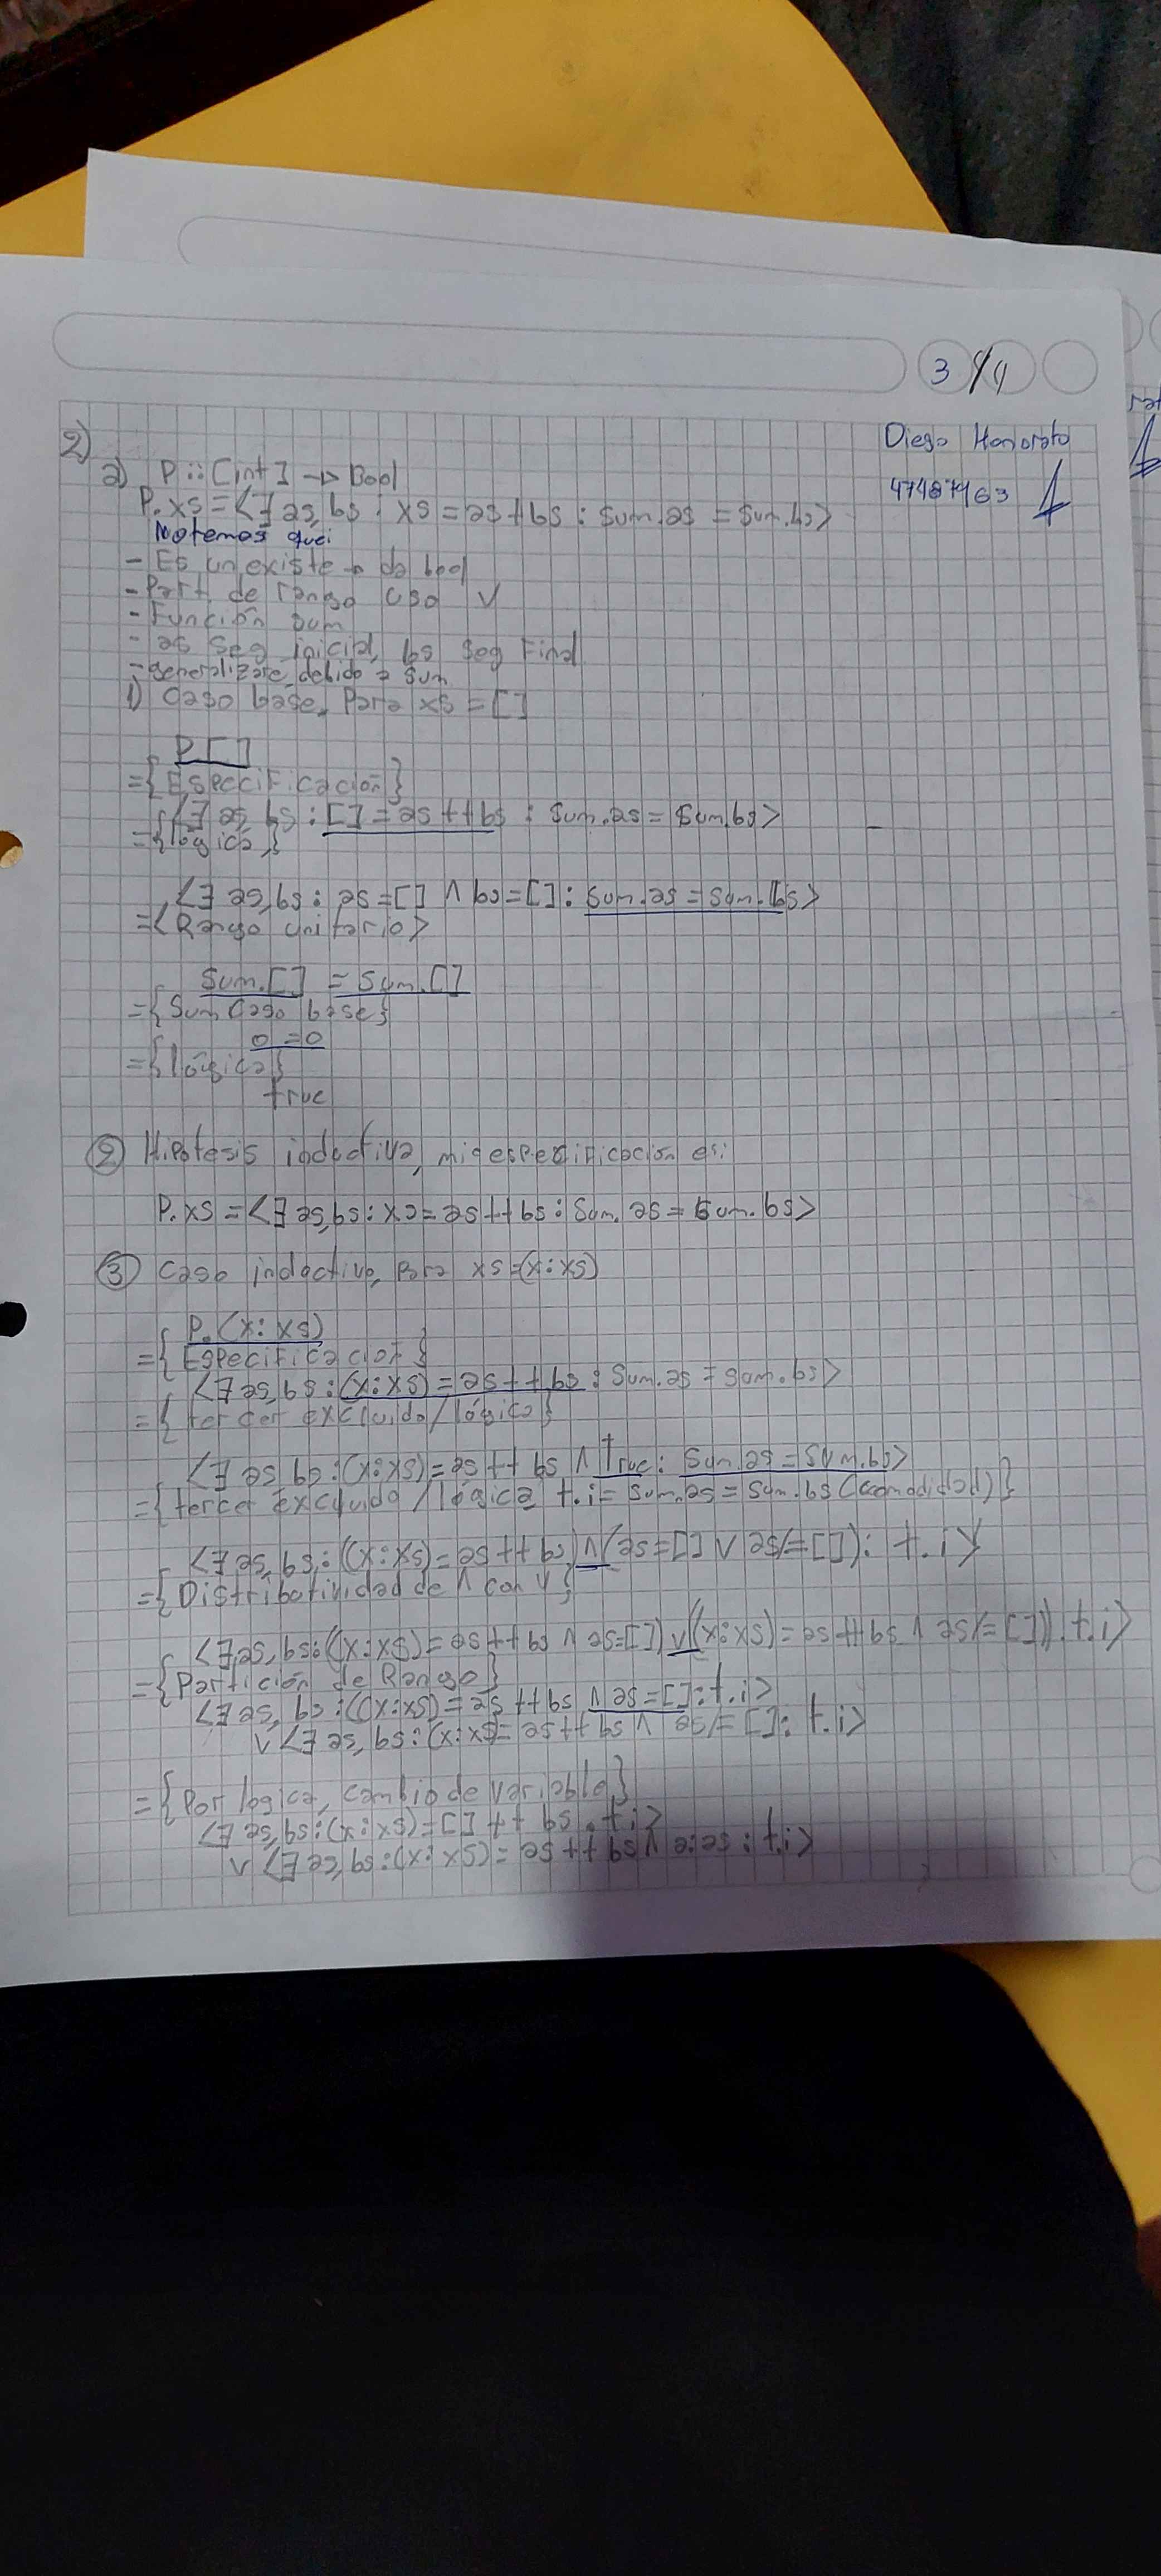 3/4
Diego Honorato
47487463
2)
a) P :: [int] → Bool
P.xs = <∃ as,bs : xs = as ++ bs : sum.as = sum.bs>
Notemos que:
- Es un existe → da bool
- Part. de rango uso ∨
- Función sum
- as seg inicial, bs seg Final
- generalizare debido a sum
1) Caso base, Para xs = []
P.[]
= {Especificación}
<∃ as,bs : [] = as ++ bs : sum.as = sum.bs>
= {lógica}
<∃ as,bs : as = [] ∧ bs = [] : sum.as = sum.bs>
= <Rango unitario>
sum.[] = sum.[]
= {Sum Caso base}
0 = 0
= {lógica}
true
② Hipotesis inductiva, mi especificicación es:
P.xs = <∃ as,bs : xs = as ++ bs : sum.as = sum.bs>
③ Caso inductivo, Para xs = (x:xs)
P.(x:xs)
= {Especificacion}
<∃ as,bs : (x:xs) = as ++ bs : sum.as = sum.bs>
= {tercer excluido/lógica}
<∃ as,bs : (x:xs) = as ++ bs ∧ True : sum.as = sum.bs>
= {tercer excluido/lógica t.i = sum.as = sum.bs (comodidad)}
<∃ as,bs : ((x:xs) = as ++ bs) ∧ (as = [] ∨ as /= []) : t.i>
= {Distributividad de ∧ con ∨}
<∃ as,bs : ((x:xs) = as ++ bs ∧ as = []) ∨ ((x:xs) = as ++ bs ∧ as /= []) : t.i>
= {Partición de Rango}
<∃ as,bs : (x:xs) = as ++ bs ∧ as = [] : t.i>
∨ <∃ as,bs : (x:xs) = as ++ bs ∧ as /= [] : t.i>
= {Por lógica, cambio de variable}
<∃ as,bs : (x:xs) = [] ++ bs : t.i>
∨ <∃ as,bs : (x:xs) = as ++ bs ∧ a:as : t.i>